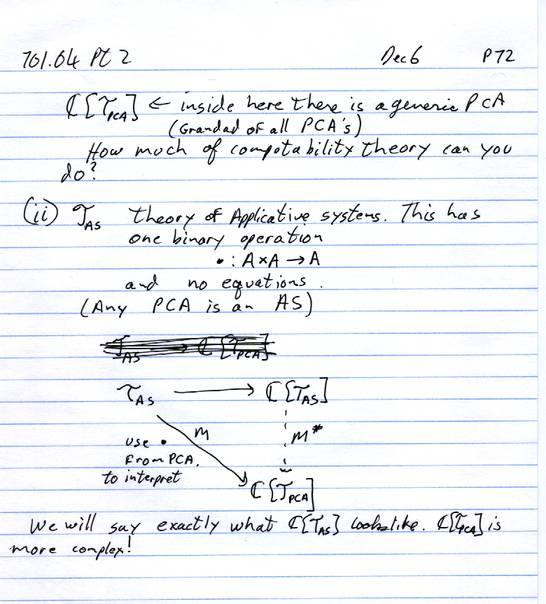 701.64 Pt 2 Dec 6 P72
ℂ[𝒯PCA] ← inside here there is a generic PCA
(Grandad of all PCA's)
How much of computability theory can you
do?
(ii) 𝒯AS theory of Applicative systems. This has
one binary operation
• : A × A → A
and no equations.
(Any PCA is an AS)
𝒯AS → ℂ[𝒯PCA]
𝒯AS → ℂ[𝒯AS]
use • M M*
from PCA,
to interpret
ℂ[𝒯PCA]
We will say exactly what ℂ[𝒯AS] looks like. ℂ[𝒯PCA] is
more complex!